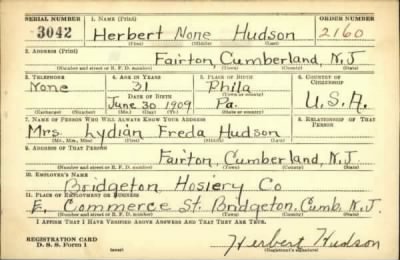 SERIAL NUMBER 1. NAME (Print) ORDER NUMBER
3042 Herbert None Hudson 2160
(First) (Middle) (Last)
2. ADDRESS (Print)
Fairton, Cumberland, N.J.
(Number and street or R. F. D. number) (Town) (County) (State)
3. TELEPHONE 4. AGE IN YEARS 5. PLACE OF BIRTH 6. COUNTRY OF CITIZENSHIP
None 31 Phila
DATE OF BIRTH (Town or county)
June 30 1909 Pa. U.S.A.
(Exchange) (Number) (Mo.) (Day) (Yr.) (State or country)
7. NAME OF PERSON WHO WILL ALWAYS KNOW YOUR ADDRESS 8. RELATIONSHIP OF THAT PERSON
Mrs. Lydian Freda Hudson
(Mr., Mrs., Miss) (First) (Middle) (Last)
9. ADDRESS OF THAT PERSON
Fairton, Cumberland, N.J.
(Number and street or R. F. D. number) (Town) (County) (State)
10. EMPLOYER'S NAME
Bridgeton Hosiery Co
11. PLACE OF EMPLOYMENT OR BUSINESS
E. Commerce St. Bridgeton, Cumb. N.J.
(Number and street or R. F. D. number) (Town) (County) (State)
I AFFIRM THAT I HAVE VERIFIED ABOVE ANSWERS AND THAT THEY ARE TRUE.
REGISTRATION CARD
D. S. S. Form 1 (over) Herbert Hudson
(Registrant's signature)